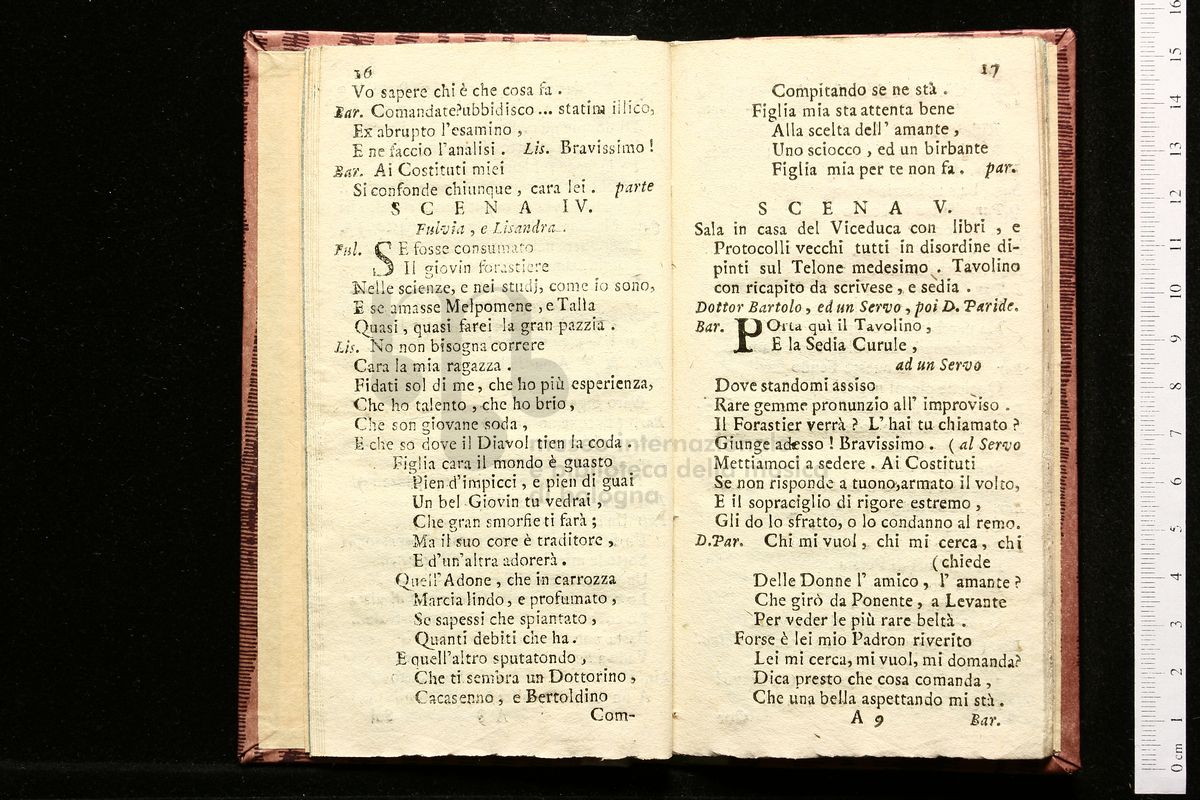 16
Vo sapere chi è che cosa fa .
Bar. Comandate? ubbidisco ... statim illico,
Ex abrupto l'esamino ,
E ne faccio l'analisi . Lis. Bravissimo !
Bar. Ai Costituti miei
Si confonde chiunque , cara lei . parte
SCENA IV.
Fulvia , e Lisandra .
Ful. SE fosse consumato
Il giovin forastiere
Nelle scienze, e nei studj, come io sono,
E se amasse Melpomene , e Talìa
Quasi , quasi farei la gran pazzia .
Lis. No non bisogna correre
Cara la mia ragazza .
Fidati sol di me, che ho più esperienza,
Che ho talento , che ho brio ,
Che son giovane soda ,
E che so dove il Diavol tien la coda .
Figlia cara il mondo è guasto
Pien d'impicci , e pien di guai
Un bel Giovin tu vedrai ,
Che gran smorfie ti farà ;
Ma il suo core è traditore ,
E d'un'altra adorerà .
Quell'Adone , che in carrozza
Marcia lindo , e profumato ,
Se sapessi che spiantato ,
Quanti debiti che ha .
E quell'altro sputatondo ,
Che ti sembra un Dottorino ,
Cacasenno , e Bertoldino
Com-
17
Compitando se ne stà .
Figlia mia sta attenta bene
Alla scelta dell' amante ,
Uno sciocco , ed un birbante
Figlia mia per te non fa . par.
SCENA V.
Sala in casa del Viceduca con libri , e
Protocolli vecchi tutti in disordine di-
pinti sul Telone medesimo . Tavolino
con ricapito da scrivese , e sedia .
Dottor Bartolo , ed un Servo , poi D. Paride.
Bar. POrta quì il Tavolino ,
E la Sedia Curule ,
ad un Servo
Dove standomi assiso
Rare gemme pronunzio all' improviso .
Il Forastier verrà ? L' hai tu chiamato ?
Giunge adesso ! Bravissimo . ( al Servo
Mettiamoci a sedere . Ai Costituti
Se non risponde a tuono,armato il volto,
E il sopraciglio di rigore estremo ,
Gli do lo sfratto, o lo condanno al remo.
D.Par. Chi mi vuol , chi mi cerca , chi
( chiede
Delle Donne l' amico , l' amante ?
Che girò da Ponente , a Levante
Per veder le più rare beltà .
Forse è lei mio Padron riverito
Lei mi cerca, mi vuol, mi domanda?
Dica presto che cosa comanda ,
Che una bella aspettando mi stà .
A 9 Bar.
museo internazionale
e biblioteca della musica
di bologna
0 cm 1 2 3 4 5 6 7 8 9 10 11 12 13 14 15 16